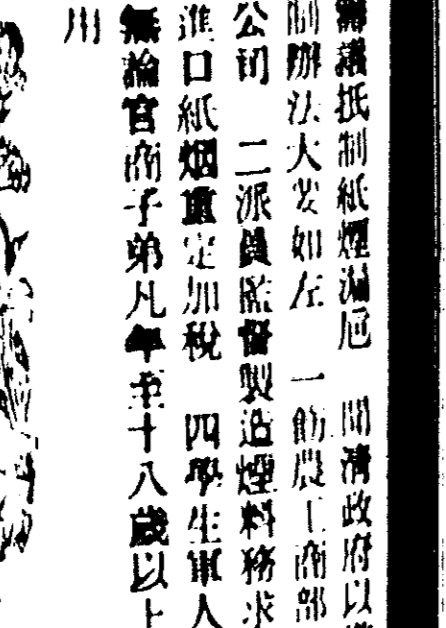 籌議抵制紙煙漏巵　聞清政府以
制辦法大畧如左　一飭農工商部
公司　二派員監督製造煙料務求
進口紙烟重定加稅　四學生軍人
無論官商子弟凡年至十八歲以上